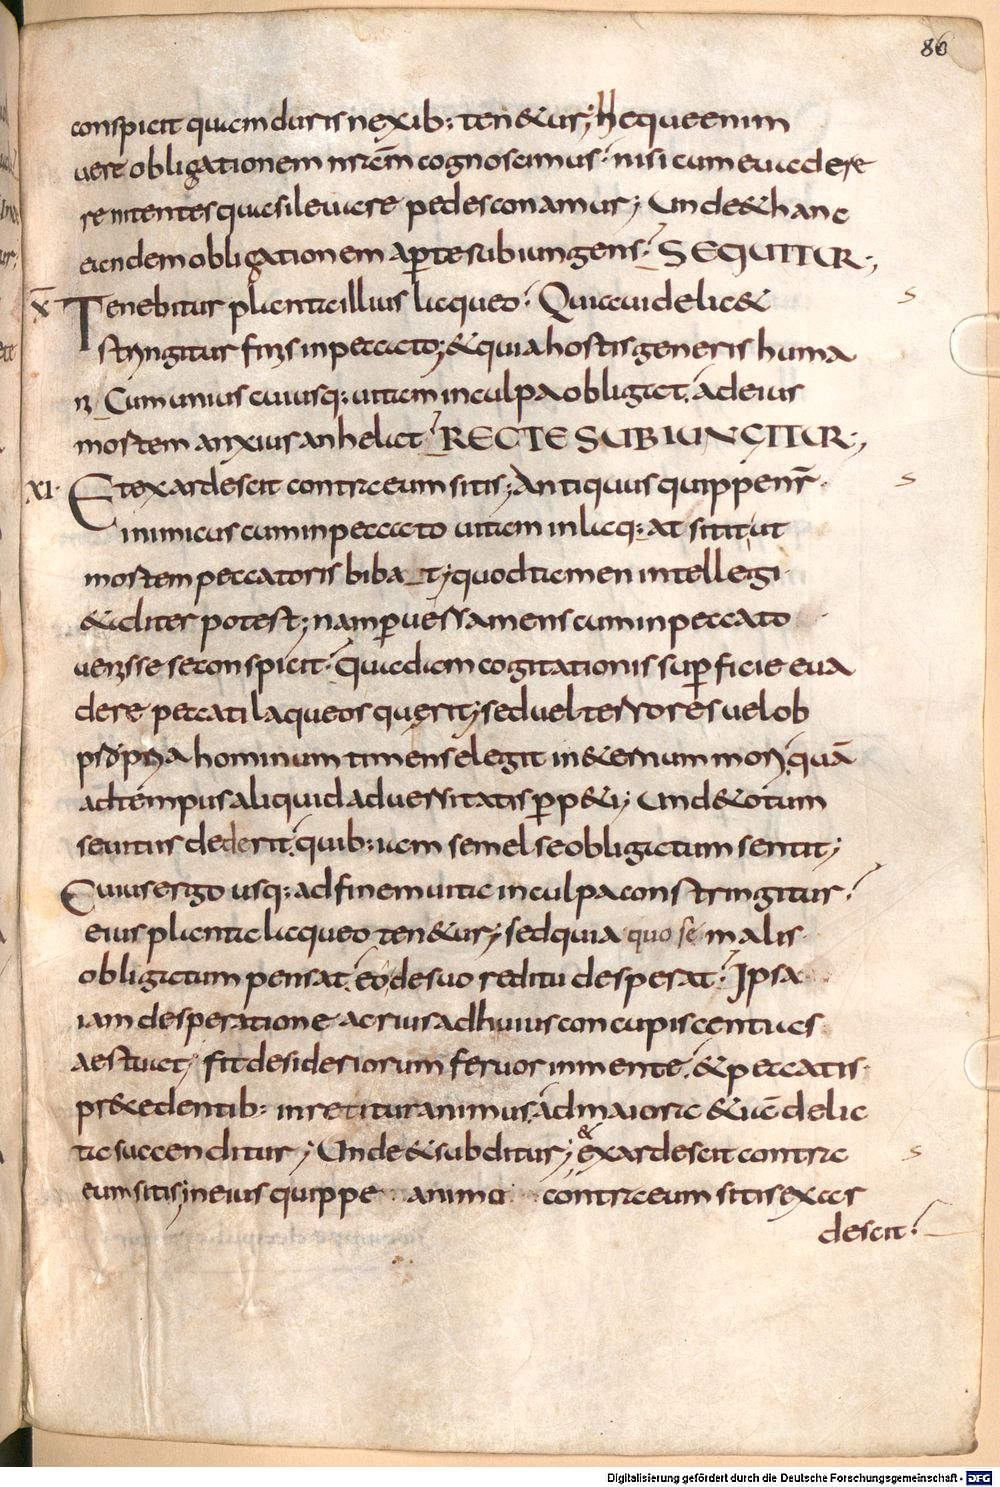 86
conspicit quam duris nexib: ten&ur; Neque enim
uere obligationem nr̄em̄ cognoscimus. nisi cum euadere
renitentes quasi leuare pedes conamur; Unde & hanc
eandem obligationem aꝑte subiungens. SEQUITUR;
X̄ Tenebitur planta illius laqueo. Quia uidelic&
s stringitur finis in peccato; & quia hostis generis huma
ni Cum unius cuiusq: uitam in culpa obligat. ad eius
mortem anxius anhelat. RECTE SUBIUNGITUR;
XI. Et exardescit contra eum sitis; Antiquus quippe nr̄
s inimicus cum in peccato uitam inlaq:at sitit ut
mortem peccatoris biba t; quod tamen intellegi
& aliter potest; nam ꝑuersa mens cum in peccato
uenisse se conspicit. quadam cogitationis suꝑficie eua
dere peccati laqueos querit; sed uel terrores uel ob
hominum timens elegit in &ernum mori quā
ad tempus aliquid aduersitatis ꝑp&i; Und& otum
seuitus dederit. quib: iam semel se obligatum sentit;
Cuius ergo usq: ad finem uita in culpa constringitur.
eius planta laqueo ten&ur; sed quia quo se malis
obligatum pensat. eo de suo reditu desperat. Ipsa
iam desperatione acrius ad huius concupiscentias
aestuat; fit desideriorum feruor in mente. & peccatis
pr&edentib: inretitur animus. ad maiora &iā delic
ta succenditur; Unde & subditur; & exardescit contra
s eum sitis; in eius quippe animo contra eum sitis exar
descit.
Digitalisierung gefördert durch die Deutsche Forschungsgemeinschaft - DFG